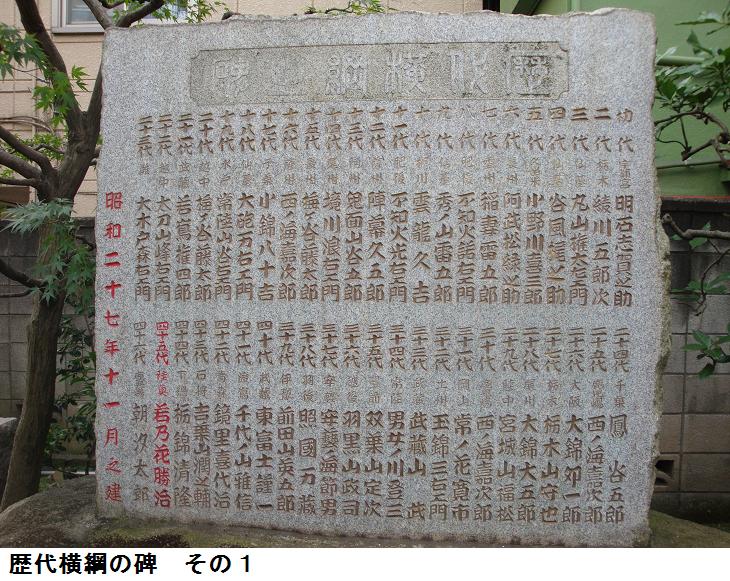 歴代横綱之碑
初代 宇都宮 明石志賀之助
二代 栃木 綾川五郎次
三代 仙台 丸山権太左エ門
四代 仙台 谷風梶之助
五代 小野川喜三郎
六代 阿武松緑之助
七代 雲州 稲妻雷五郎
八代 肥後 不知火諾右エ門
九代 秀ノ山雷五郎
十代 柳川 雲龍久吉
十一代 肥後 不知火光右エ門
十二代 陣幕久五郎
十三代 鬼面山谷五郎
十四代 境川浪右エ門
十五代 梅ヶ谷藤太郎
十六代 西ノ海嘉次郎
十七代 小錦八十吉
十八代 仙台 大砲万右エ門
十九代 水戸 常陸山谷右エ門
二十代 越中 梅ヶ谷藤太郎
二十一代 武蔵 若嶌権四郎
二十二代 越中 太刀山峰右エ門
二十三代 大木戸森右エ門
二十四代 千葉 鳳谷五郎
二十五代 西ノ海嘉次郎
二十六代 大阪 大錦卯一郎
二十七代 栃木 栃木山守也
二十八代 大錦大五郎
二十九代 宮城山福松
三十代 西ノ海嘉次郎
三十一代 岡山 常ノ花寛市
三十二代 土州 玉錦三右エ門
三十三代 武蔵 武蔵山武
三十四代 常陸 男女ノ川登三
三十五代 双葉山定次
三十六代 越後 羽黒山政司
三十七代 安芸 安藝ノ海節男
三十八代 羽後 照國万蔵
三十九代 伊豫 前田山英五郎
四十代 武蔵 東富士謹一
四十一代 千代ノ山雅信
四十二代 鏡里喜代治
四十三代 石狩 吉葉山潤之輔
四十四代 下総 栃錦清隆
四十五代 陸奥 若乃花勝治
四十六代 朝汐太郎
昭和二十七年十一月之建
歴代横綱の碑 その１